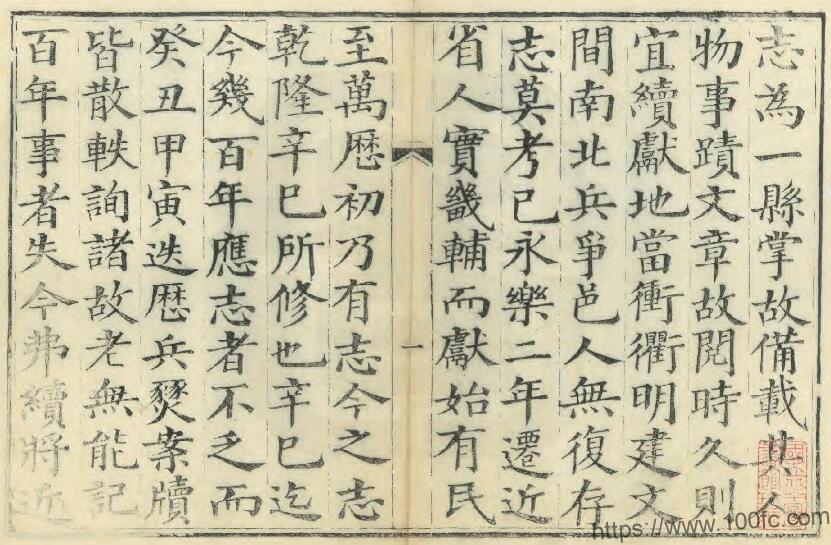 志為一縣掌故備載其人
物事蹟文章故閱時久則
宜續獻地當衝衢明建文
間南北兵爭邑人無復存
志莫考已永樂二年遷近
省人實畿輔而獻始有民
一
至萬曆初乃有志今之志
乾隆辛巳所修也辛巳迄
今幾百年應志者不乏而
癸丑甲寅迭歷兵燹案牘
皆散軼詢諸故老無能記
百年事者失今弗續將近
https://www.100fc.com